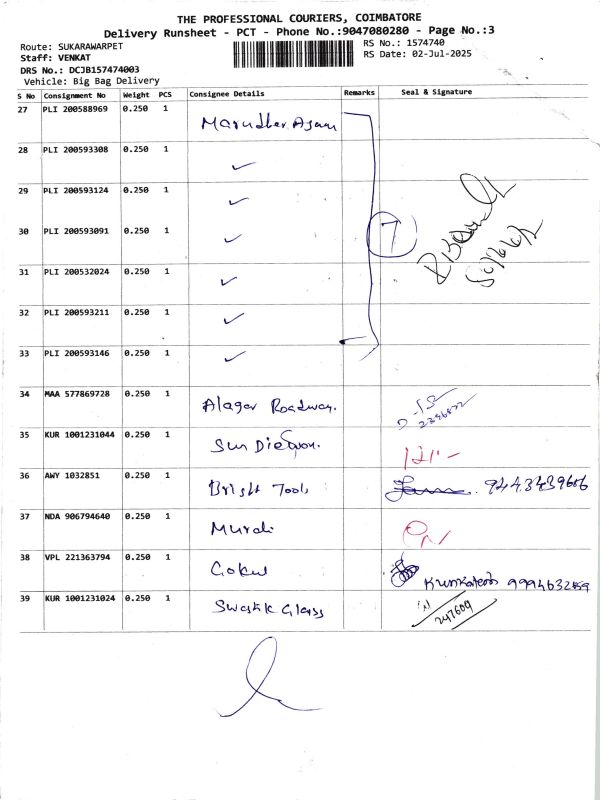 THE PROFESSIONAL COURIERS, COIMBATORE
Delivery Runsheet - PCT - Phone No.:9047080280 - Page No.:3
Route: SUKARAWARPET
RS No.: 1574740
Staff: VENKAT
RS Date: 02-Jul-2025
DRS No.: DCJB157474003
Vehicle: Big Bag Delivery
S No Consignment No Weight PCS Consignee Details Remarks Seal & Signature
27 PLI 200588969 0.250 1
28 PLI 200593308 0.250 1 ✓
29 PLI 200593124 0.250 1 ✓
30 PLI 200593091 0.250 1 ✓ 7
31 PLI 200532024 0.250 1 ✓
32 PLI 200593211 0.250 1 ✓
33 PLI 200593146 0.250 1 ✓
34 MAA 577869728 0.250 1 Alagar Roadway.
35 KUR 1001231044 0.250 1 Sun
36 AWY 1032851 0.250 1 Bright Tools 9443439606
37 NDA 906794640 0.250 1 Murali
38 VPL 221363794 0.250 1 Gokul 9994632459
39 KUR 1001231024 0.250 1 Swastik Glass 247609